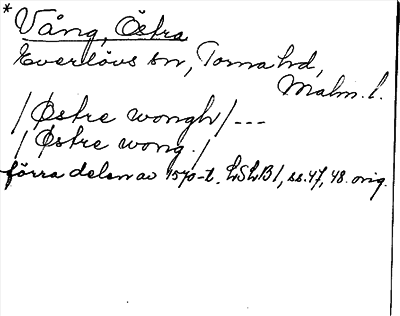 * Vång, Östra
Everlövs sn, Torna hd,
Malm. l.
/Østre wongh/---
/Østre wong./
förra delen av 1570-t. LSLB1, ss. 47, 48. orig.